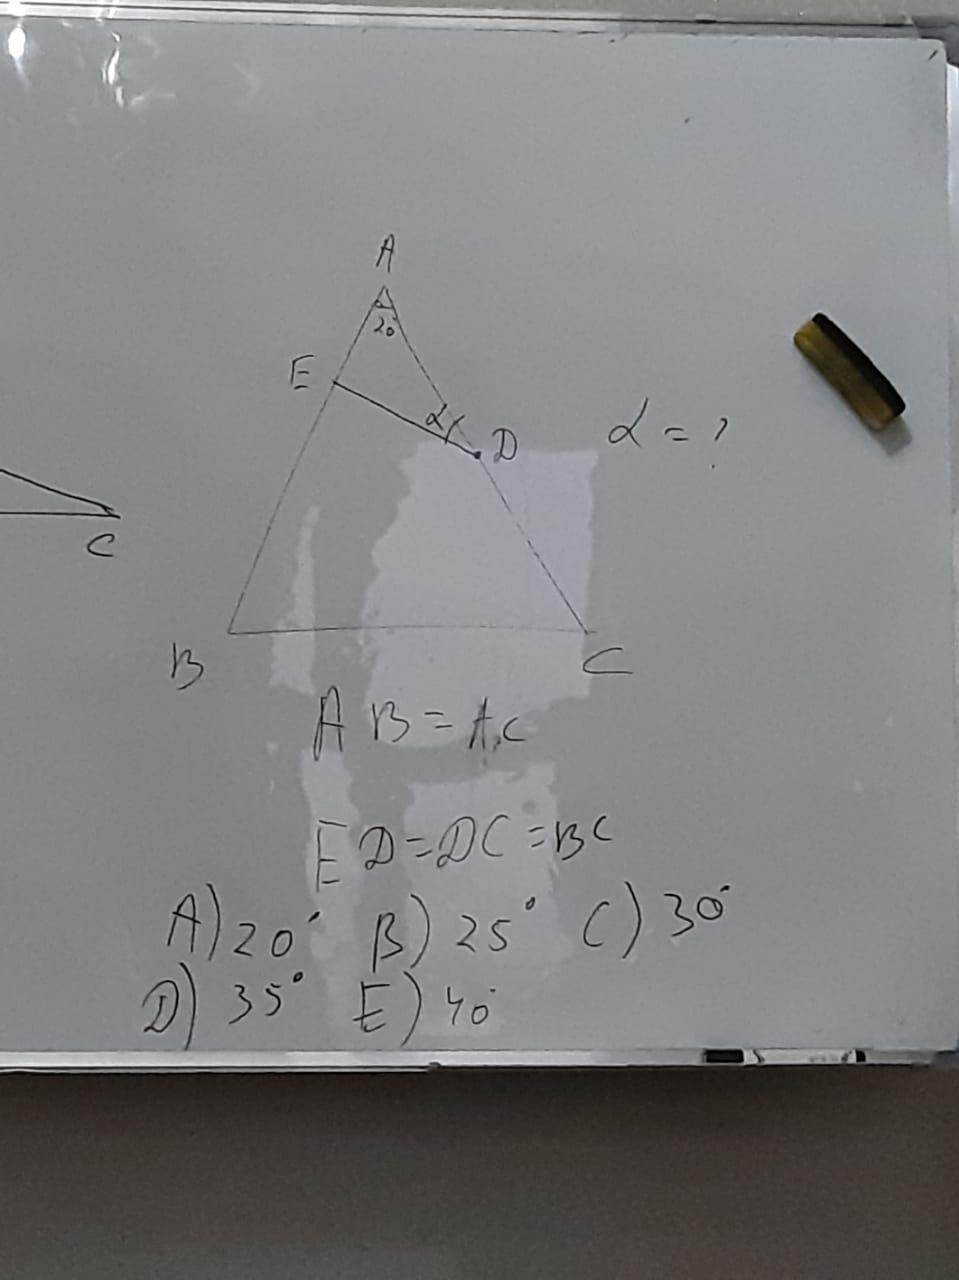 A
20
E
α
D
α = ?
C
B
C
AB = AC
ED = DC = BC
A) 20° B) 25° C) 30°
D) 35° E) 40°